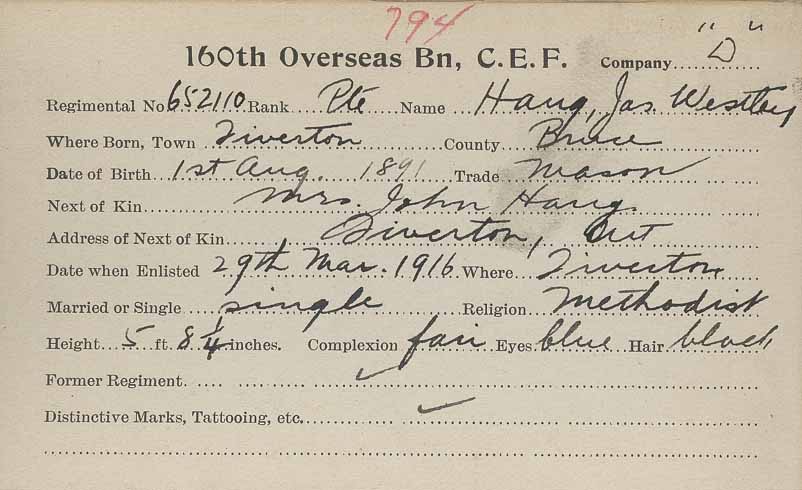 794
160th Overseas Bn, C.E.F. Company "D"
Regimental No 652110 Rank Pte Name Haug, Jas. Westley
Where Born, Town Tiverton County Bruce
Date of Birth 1st Aug. 1891 Trade Mason
Next of Kin Mrs. John Haug.
Address of Next of Kin Tiverton, Ont
Date when Enlisted 29th Mar. 1916 Where Tiverton
Married or Single single Religion Methodist
Height 5 ft. 8 1/4 inches. Complexion fair Eyes blue Hair black
Former Regiment ✓
Distinctive Marks, Tattooing, etc. ✓